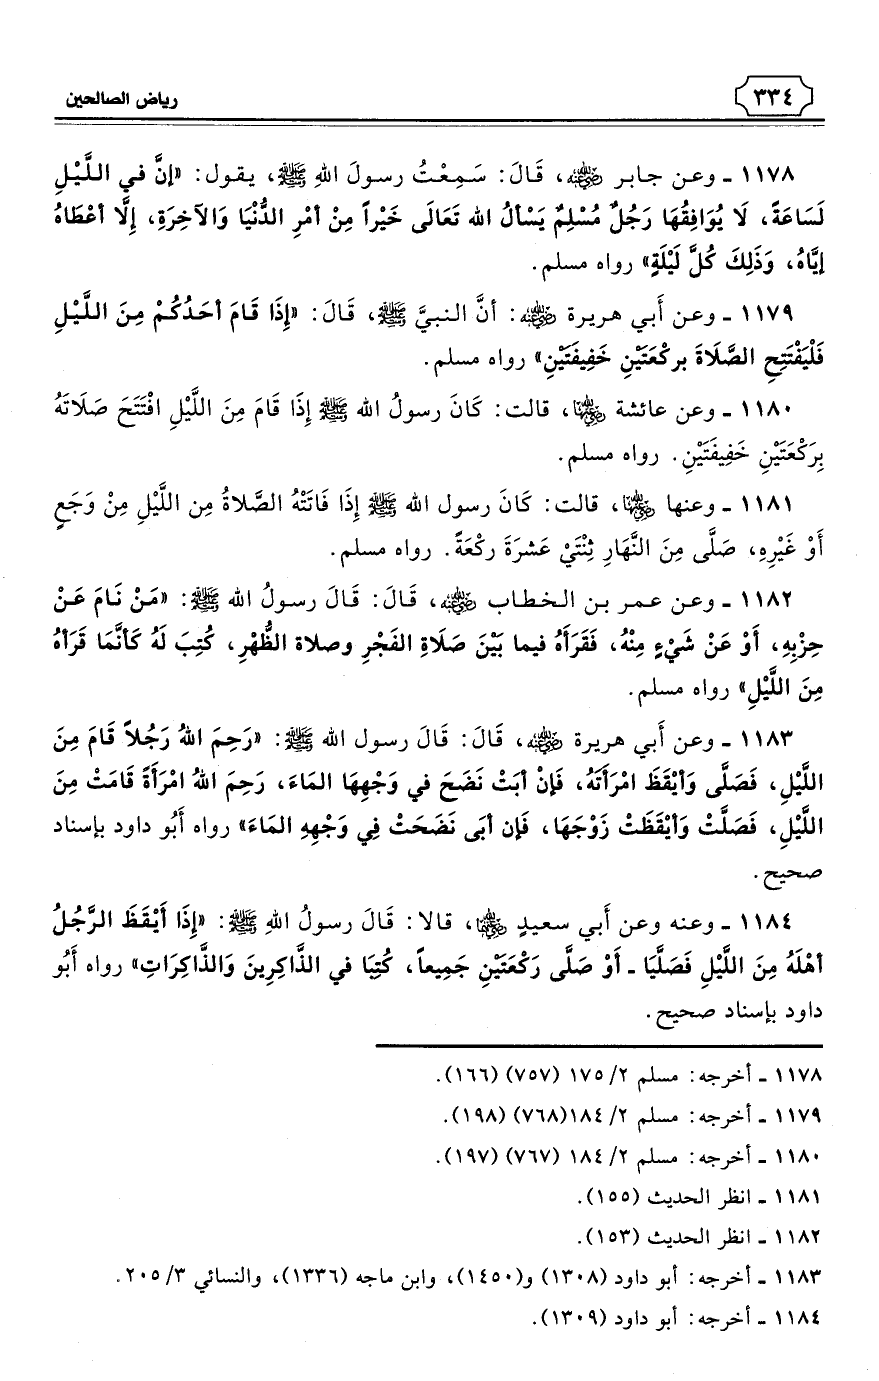 ٣٣٤
رياض الصالحين
١١٧٨ ـ وعن جابر ﵁، قَالَ: سَمِعْتُ رسولَ اللهِ ﷺ، يقول: «إنَّ في اللَّيْلِ
لَسَاعَةً، لَا يُوَافِقُهَا رَجُلٌ مُسْلِمٌ يَسْألُ الله تَعَالَى خَيْراً مِنْ أمْرِ الدُّنْيَا وَالآخِرَةِ، إلَّا أعْطَاهُ
إيَّاهُ، وَذَلِكَ كُلَّ لَيْلَةٍ» رواه مسلم.
١١٧٩ ـ وعن أَبي هريرة ﵁: أنَّ النبيَّ ﷺ، قَالَ: «إِذَا قَامَ أحَدُكُمْ مِنَ اللَّيْلِ
فَلْيَفْتَتِحِ الصَّلَاةَ بركْعَتَيْنِ خَفِيفَتَيْنِ» رواه مسلم.
١١٨٠ ـ وعن عائشة ﵂، قالت: كَانَ رسولُ الله ﷺ إِذَا قَامَ مِنَ اللَّيْلِ افْتَتَحَ صَلَاتَهُ
بِرَكْعَتَيْنِ خَفِيفَتَيْنِ. رواه مسلم.
١١٨١ ـ وعنها ﵂، قالت: كَانَ رسول الله ﷺ إِذَا فَاتَتْهُ الصَّلاةُ مِن اللَّيْلِ مِنْ وَجَعٍ
أَوْ غَيْرِهِ، صَلَّى مِنَ النَّهَارِ ثِنْتَيْ عَشرَةَ ركْعَةً. رواه مسلم.
١١٨٢ ـ وعن عمر بن الخطاب ﵁، قَالَ: قَالَ رسولُ الله ﷺ: «مَنْ نَامَ عَنْ
حِزْبِهِ، أَوْ عَنْ شَيْءٍ مِنْهُ، فَقَرَأَهُ فيما بَيْنَ صَلَاةِ الفَجْرِ وصلاة الظُّهْرِ، كُتِبَ لَهُ كَأنَّمَا قَرَأهُ
مِنَ اللَّيْلِ» رواه مسلم.
١١٨٣ ـ وعن أَبي هريرة ﵁، قَالَ: قَالَ رسول الله ﷺ: «رَحِمَ اللهُ رَجُلاً قَامَ مِنَ
اللَّيْلِ، فَصَلَّى وَأيْقَظَ امْرَأَتَهُ، فَإنْ أبَتْ نَضَحَ في وَجْهِهَا المَاءَ، رَحِمَ اللهُ امْرَأَةً قَامَتْ مِنَ
اللَّيْلِ، فَصَلَّتْ وَأيْقَظَتْ زَوْجَهَا، فَإن أبَى نَضَحَتْ فِي وَجْهِهِ المَاءَ» رواه أَبُو داود بإسناد
صحيح.
١١٨٤ ـ وعنه وعن أَبي سعيدٍ ﵄، قالا: قَالَ رسولُ اللهِ ﷺ: «إِذَا أَيْقَظَ الرَّجُلُ
أهْلَهُ مِنَ اللَّيْلِ فَصَلَّيَا ـ أَوْ صَلَّى رَكْعَتَيْنِ جَمِيعاً، كُتِبَا في الذَّاكِرِينَ وَالذَّاكِرَاتِ» رواه أَبُو
داود بإسناد صحيح.
١١٧٨ ـ أخرجه: مسلم ٢/ ١٧٥ (٧٥٧) (١٦٦).
١١٧٩ ـ أخرجه: مسلم ٢/ ١٨٤(٧٦٨) (١٩٨).
١١٨٠ ـ أخرجه: مسلم ٢/ ١٨٤ (٧٦٧) (١٩٧).
١١٨١ ـ انظر الحديث (١٥٥).
١١٨٢ ـ انظر الحديث (١٥٣).
١١٨٣ ـ أخرجه: أبو داود (١٣٠٨) و(١٤٥٠)، وابن ماجه (١٣٣٦)، والنسائي ٣/ ٢٠٥.
١١٨٤ ـ أخرجه: أبو داود (١٣٠٩).